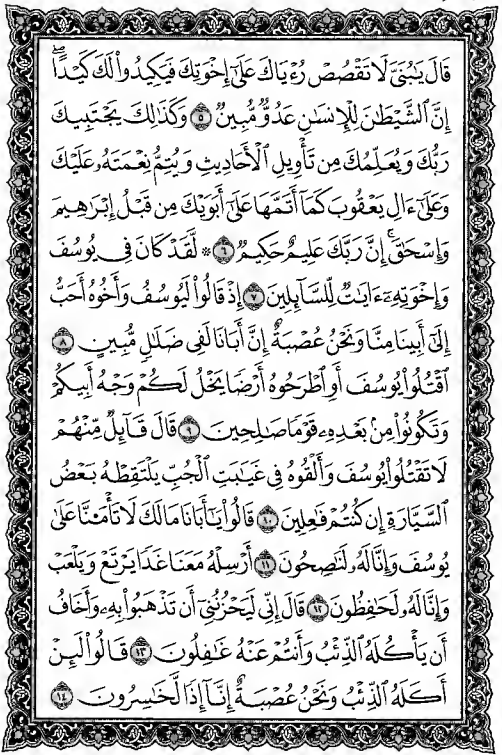 قَالَ يَٰبُنَىَّ لَا تَقۡصُصۡ رُءۡيَاكَ عَلَىٰٓ إِخۡوَتِكَ فَيَكِيدُواْ لَكَ كَيۡدًاۖ
إِنَّ ٱلشَّيۡطَٰنَ لِلۡإِنسَٰنِ عَدُوّٞ مُّبِينٞ ٥ وَكَذَٰلِكَ يَجۡتَبِيكَ
رَبُّكَ وَيُعَلِّمُكَ مِن تَأۡوِيلِ ٱلۡأَحَادِيثِ وَيُتِمُّ نِعۡمَتَهُۥ عَلَيۡكَ
وَعَلَىٰٓ ءَالِ يَعۡقُوبَ كَمَآ أَتَمَّهَا عَلَىٰٓ أَبَوَيۡكَ مِن قَبۡلُ إِبۡرَٰهِيمَ
وَإِسۡحَٰقَۚ إِنَّ رَبَّكَ عَلِيمٌ حَكِيمٞ ٦ * لَّقَدۡ كَانَ فِى يُوسُفَ
وَإِخۡوَتِهِۦٓ ءَايَٰتٞ لِّلسَّآئِلِينَ ٧ إِذۡ قَالُواْ لَيُوسُفُ وَأَخُوهُ أَحَبُّ
إِلَىٰٓ أَبِينَا مِنَّا وَنَحۡنُ عُصۡبَةٌ إِنَّ أَبَانَا لَفِى ضَلَٰلٖ مُّبِينٍ ٨
ٱقۡتُلُواْ يُوسُفَ أَوِ ٱطۡرَحُوهُ أَرۡضٗا يَخۡلُ لَكُمۡ وَجۡهُ أَبِيكُمۡ
وَتَكُونُواْ مِنۢ بَعۡدِهِۦ قَوۡمٗا صَٰلِحِينَ ٩ قَالَ قَآئِلٞ مِّنۡهُمۡ
لَا تَقۡتُلُواْ يُوسُفَ وَأَلۡقُوهُ فِى غَيَٰبَتِ ٱلۡجُبِّ يَلۡتَقِطۡهُ بَعۡضُ
ٱلسَّيَّارَةِ إِن كُنتُمۡ فَٰعِلِينَ ١٠ قَالُواْ يَٰٓأَبَانَا مَالَكَ لَا تَأۡمَ۬نَّا عَلَىٰ
يُوسُفَ وَإِنَّا لَهُۥ لَنَٰصِحُونَ ١١ أَرۡسِلۡهُ مَعَنَا غَدٗا يَرۡتَعۡ وَيَلۡعَبۡ
وَإِنَّا لَهُۥ لَحَٰفِظُونَ ١٢ قَالَ إِنِّى لَيَحۡزُنُنِىٓ أَن تَذۡهَبُواْ بِهِۦ وَأَخَافُ
أَن يَأۡكُلَهُ ٱلذِّئۡبُ وَأَنتُمۡ عَنۡهُ غَٰفِلُونَ ١٣ قَالُواْ لَئِنۡ
أَكَلَهُ ٱلذِّئۡبُ وَنَحۡنُ عُصۡبَةٌ إِنَّآ إِذٗا لَّخَٰسِرُونَ ١٤